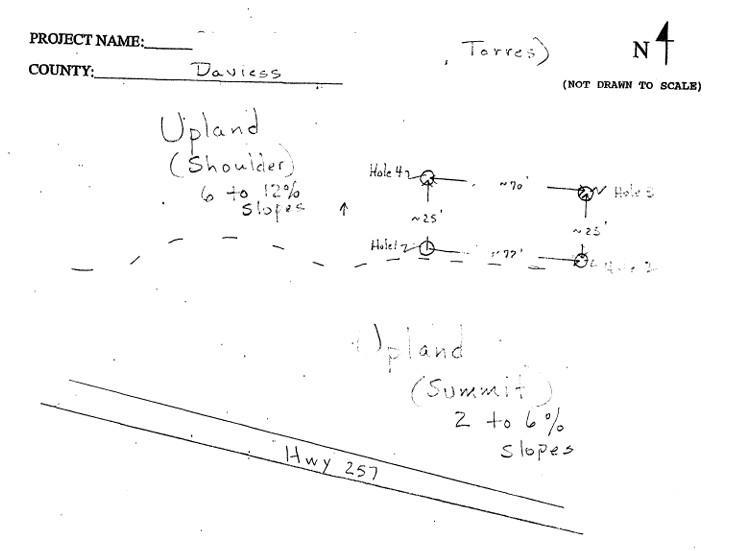 PROJECT NAME:
Torres)
N
COUNTY: Daviess
(NOT DRAWN TO SCALE)
Upland
(Shoulder)
6 to 12%
slopes
Hole 4
~70'
Hole 3
~25'
~25'
Hole 1
~77'
2
Upland
(Summit)
2 to 6%
slopes
Hwy 257